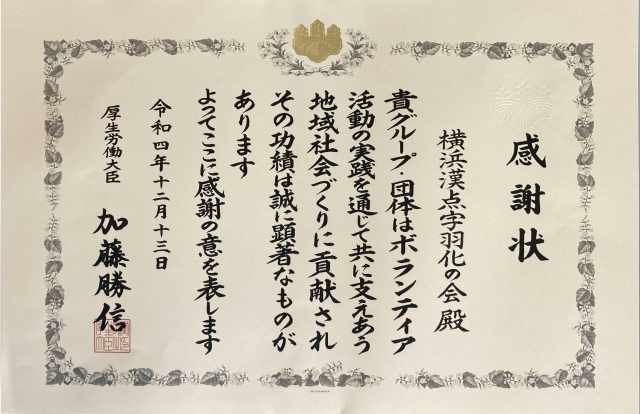 感謝状
横浜漢点字羽化の会殿
貴グループ・団体はボランティア
活動の実践を通じて共に支えあう
地域社会づくりに貢献され
その功績は誠に顕著なものが
あります
よってここに感謝の意を表します
令和四年十二月十三日
厚生労働大臣
加藤勝信